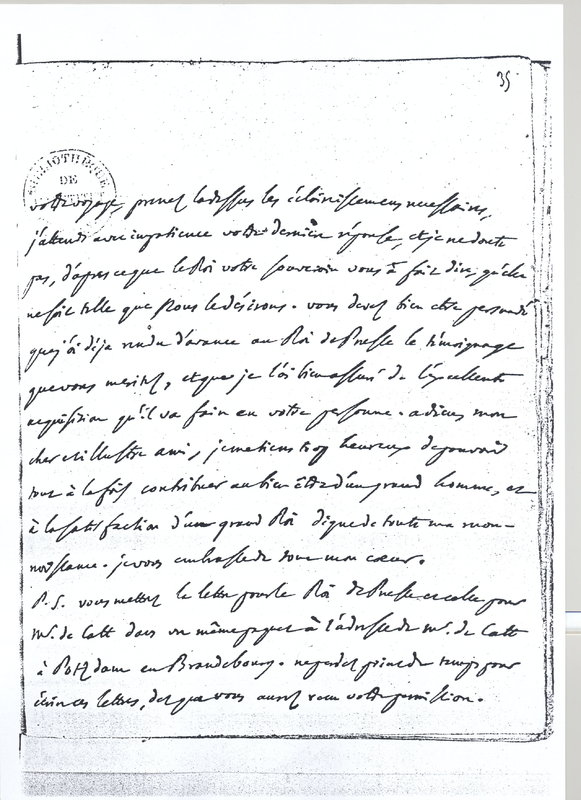 35
BIBLIOTHEQUE
DE
votre voyage, prenez ladessus les éclaircissemens necessaires,
j'attends avec impatience votre derniere réponse, et je ne doute
pas, d'apres ce que le Roi votre souverain vous a fait dire, qu'elle
ne soit telle que nous le désirons. vous devez bien etre persuadé
que j'ai déja rendu d'avance au Roi de Prusse le témoignage
que vous meritez, et que je l'ai bien assuré de l'excellente
acquisition qu'il va faire en votre personne. adieu mon
cher et illustre ami, je me tiens trop heureux de pouvoir
tout à la fois contribuer au bien être d'un grand homme, et
à la satisfaction d'un grand Roi digne de toute ma recon-
noissance. je vous embrasse de tout mon cœur.
P.S. vous mettrez la lettre pour le Roi de Prusse et celle pour
Mr. de Catt dans un même paquet à l'adresse de Mr. de Catt
à Potzdam en Brandebourg. ne perdez point de temps pour
écrire ces lettres, dès que vous aurez reçu votre permission.